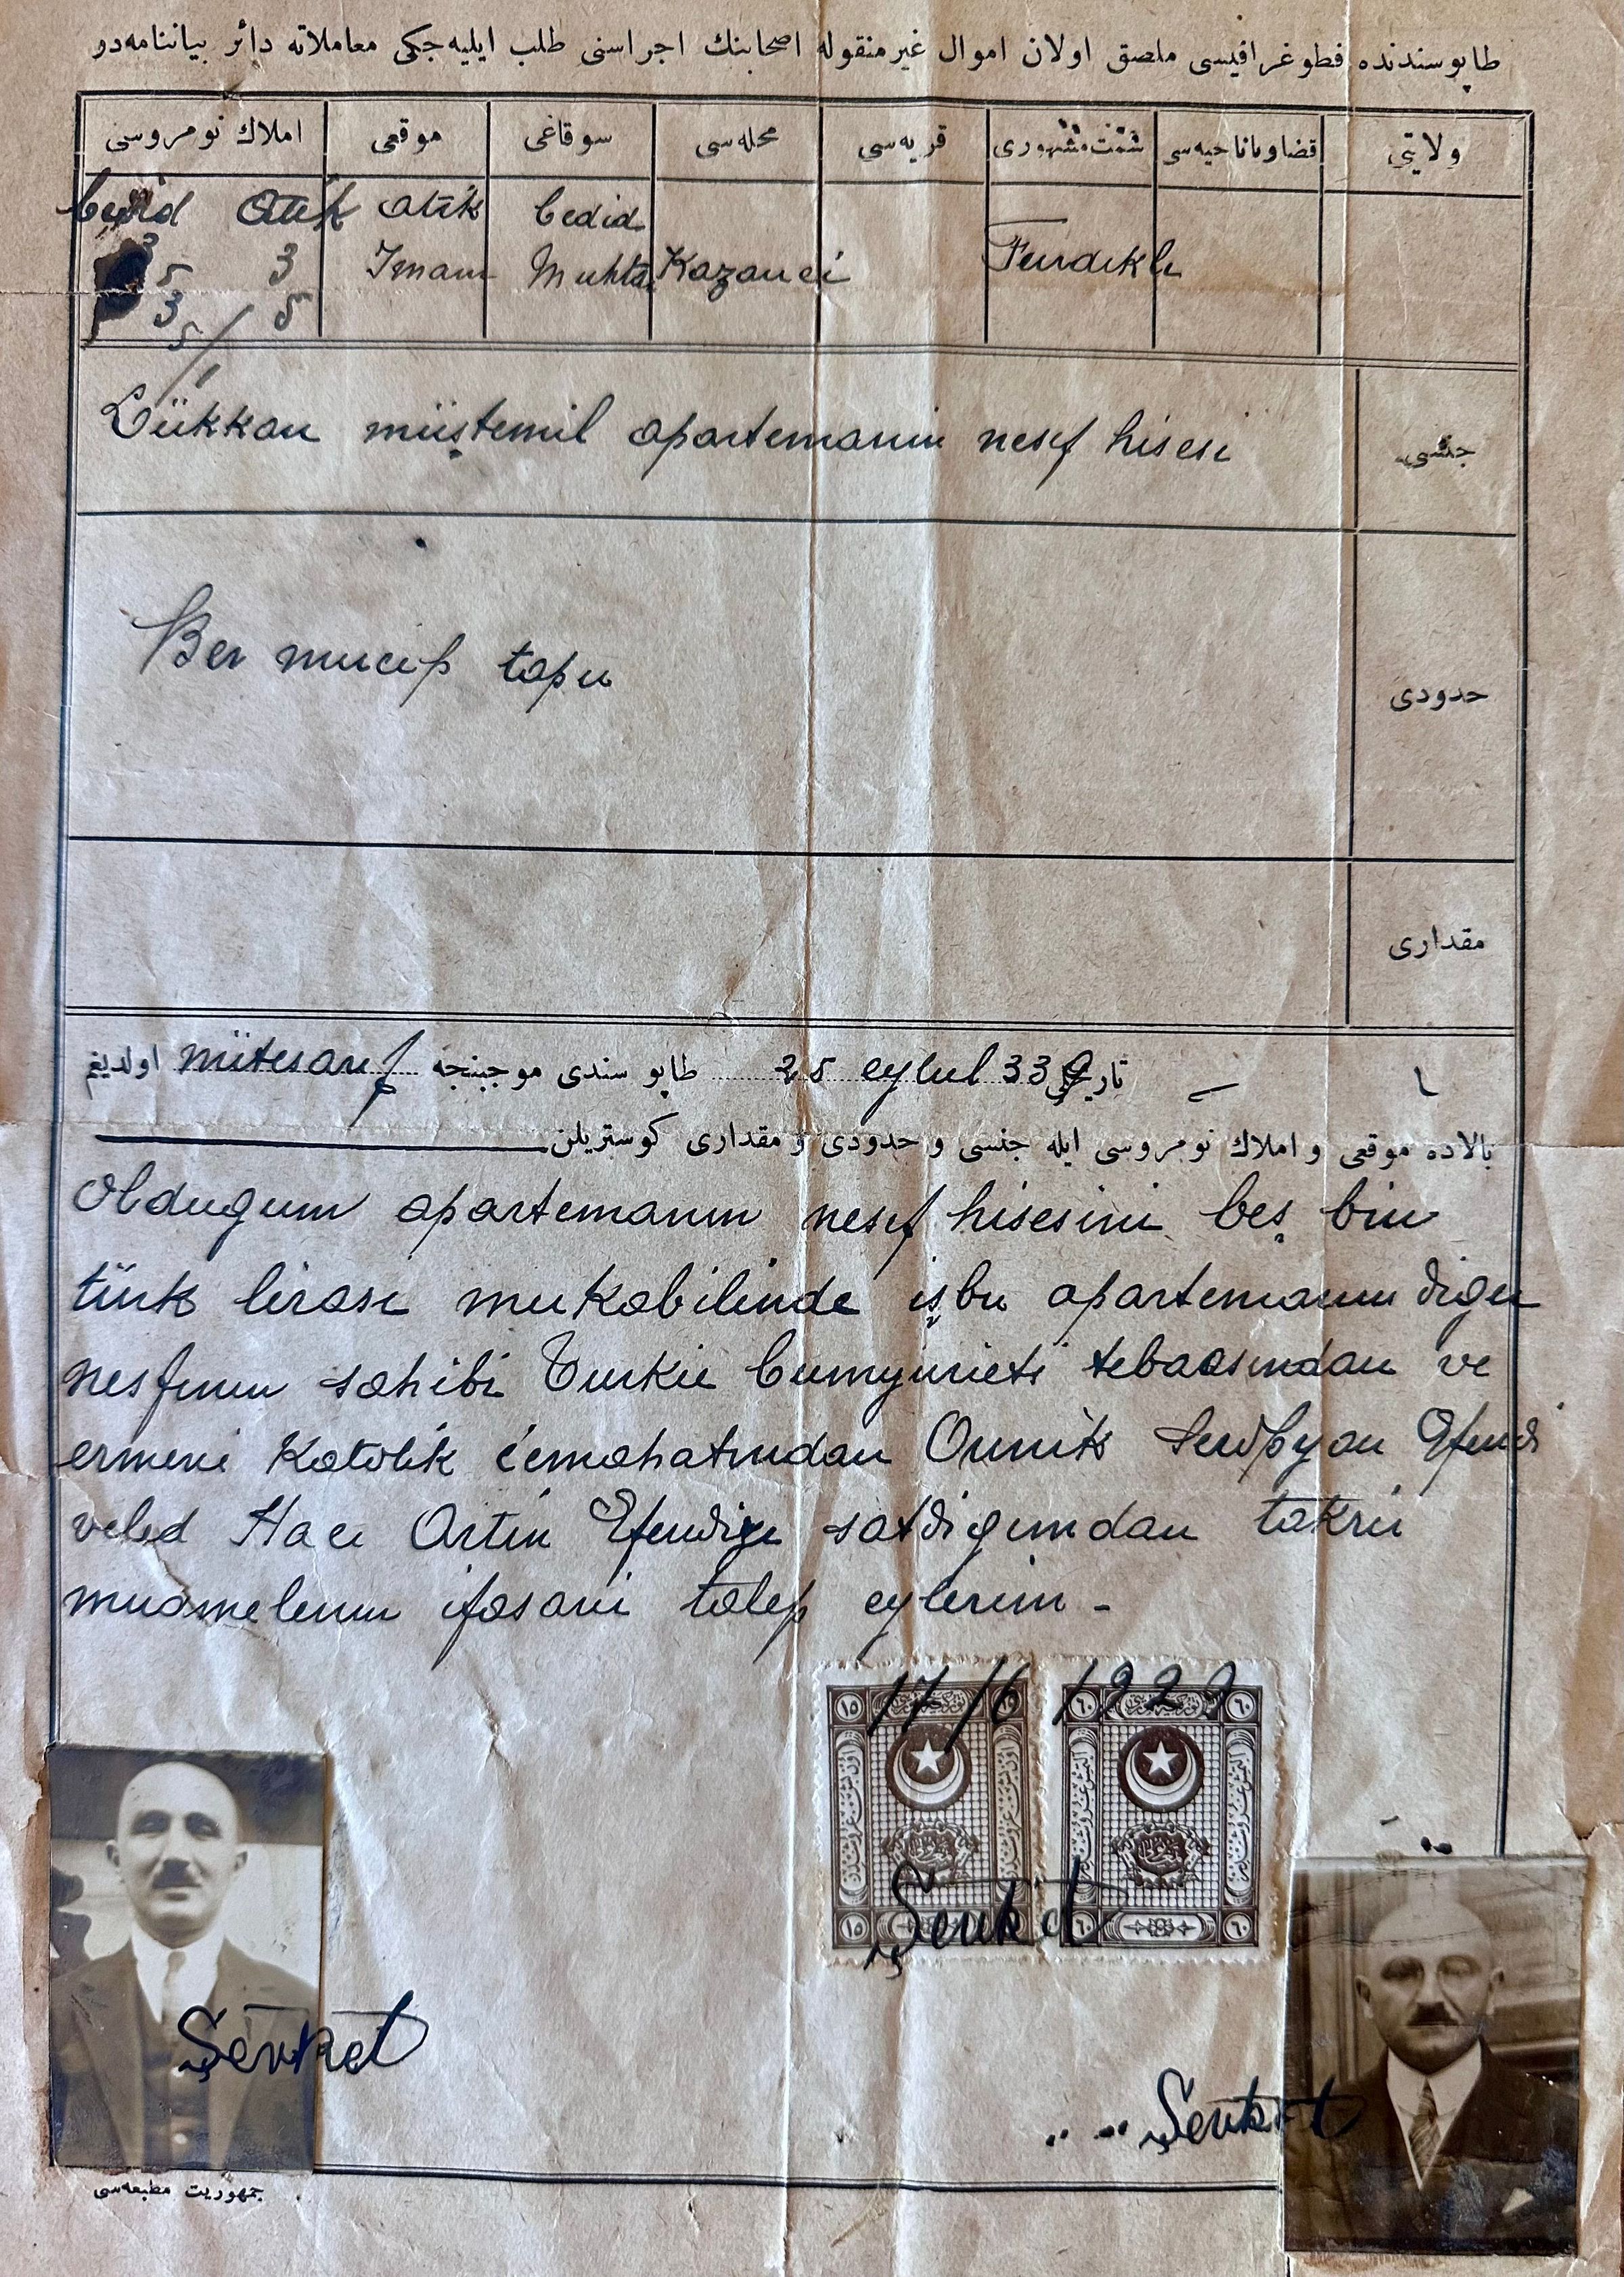 طاپو سندنده فطوغرافیسی ملصق اولان اموال غیرمنقوله اصحابنك اجراسنی طلب ایلیه‌جكی معاملاته دائر بیاننامه‌در
ولایتی قضا ویا ناحیه‌سی قریه‌سی محله‌سی سوقاغی موقعی املاك نومروسی
Cedid Atik atik Cedid
3 5 3 Imam Muhtar Kazanci Fındıklı
3 5
5/1
Dükkan müştemil apartemanın nesıf hisesi جنسی
Ber mucip tapu حدودی
مقداری
تاریخلی 25 eylul 339 طاپو سندی موجبنجه mütesarıf اولدیغم
بالاده موقعی و املاك نومروسی ایله جنسی و حدودی و مقداری كوستریلن
Oldugum apartemanın nesıf hisesini beş bin
türk lirası mukabilinde işbu apartemanın diger
nesfının sahibi Turkie Cumhurieti tebaasından ve
ermeni Katolik cemahatından Onnik Efendi
veled Hacı Artin Efendiye satdigımdan takrir
muamelenin ifasani talep eylerim -
17/6 1929
١٥ ١٥ ٦٠ ٦٠
١٥ ٦٠ ٦٠
Şevket
Şevket
Şevket
جمهوریت مطبعه‌سی